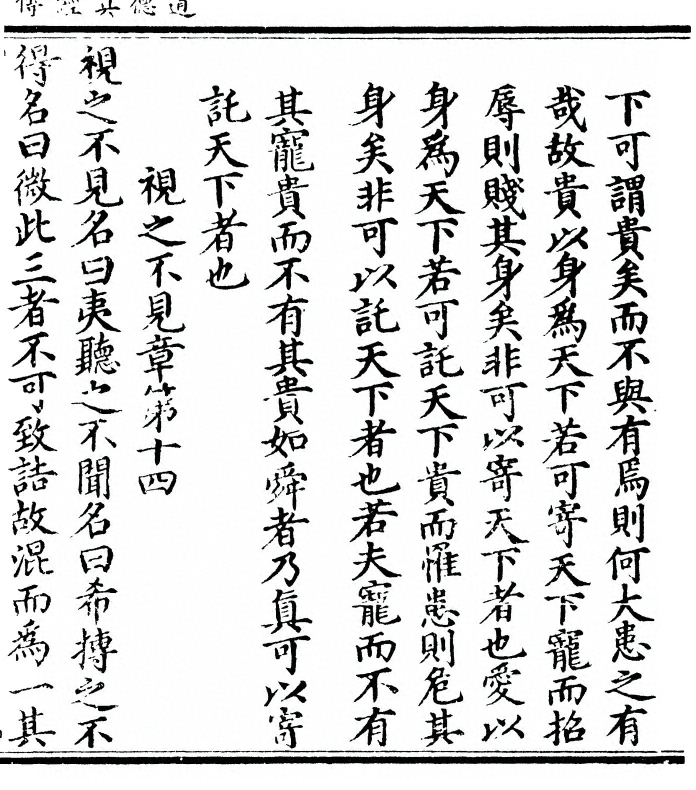 道德真經傳
下可謂貴矣而不與有焉則何大患之有
哉故貴以身爲天下若可寄天下寵而招
辱則賤其身矣非可以寄天下者也愛以
身爲天下若可託天下貴而罹患則危其
身矣非可以託天下者也若夫寵而不有
其寵貴而不有其貴如舜者乃真可以寄
託天下者也
視之不見章第十四
視之不見名曰夷聽之不聞名曰希摶之不
得名曰微此三者不可致詰故混而爲一其